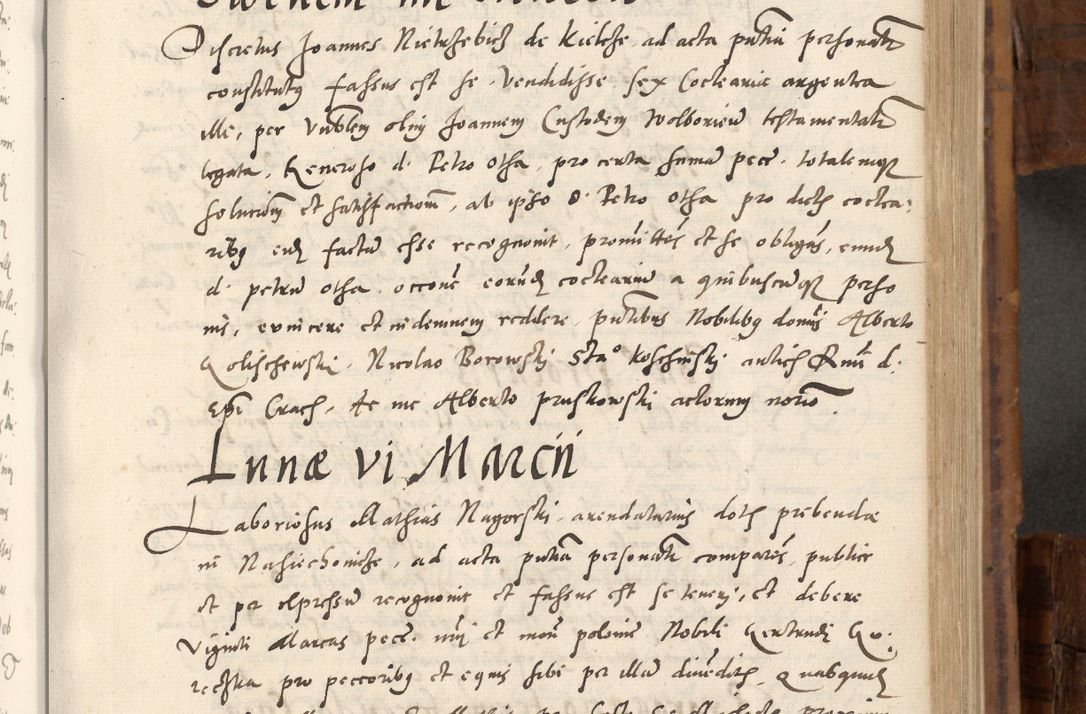 Discretus Joannes Nietrzebicz de Kielcze ad acta pntia personalr
constitutq fassus est se vendidisse sex Coclearia argentea
ille, per Vnblem olim Joannem Custodem Wolborien testamentalr
legata, Generoso d. Petro Otfa, pro certa suma pece. totalemqz
solucionem et satisfactionem, ab ipso d. Petro Otfa pro dictis coclea:
ribq eidz factam esse recognouit, promittens et se obligans, eundz
d. petrum Otfa occone eorundz coclearium a quibuscumqz perso
nis, euincere et indemnem reddere, pntibus Nobilibq domis Alberto
Golischewski, Nicolao Borowski Sta° Koschinski
Epi Crach, te me Alberto pruskowski actorum norio.
Lunæ vi Marcii
Laboriosus Mathias Nagorski, arendatarius dotis prebendæ
in Nasiechonicze, ad acta pntia personalr comparens, publice
et per expressum recognouit et fassus est se teneri, et debere
Viginti Marcas pece. nri et moni polonie Nobili Gertrudi Go:
reczka pro peccoribq et equis sibi per illam diuenditis, quasquidz